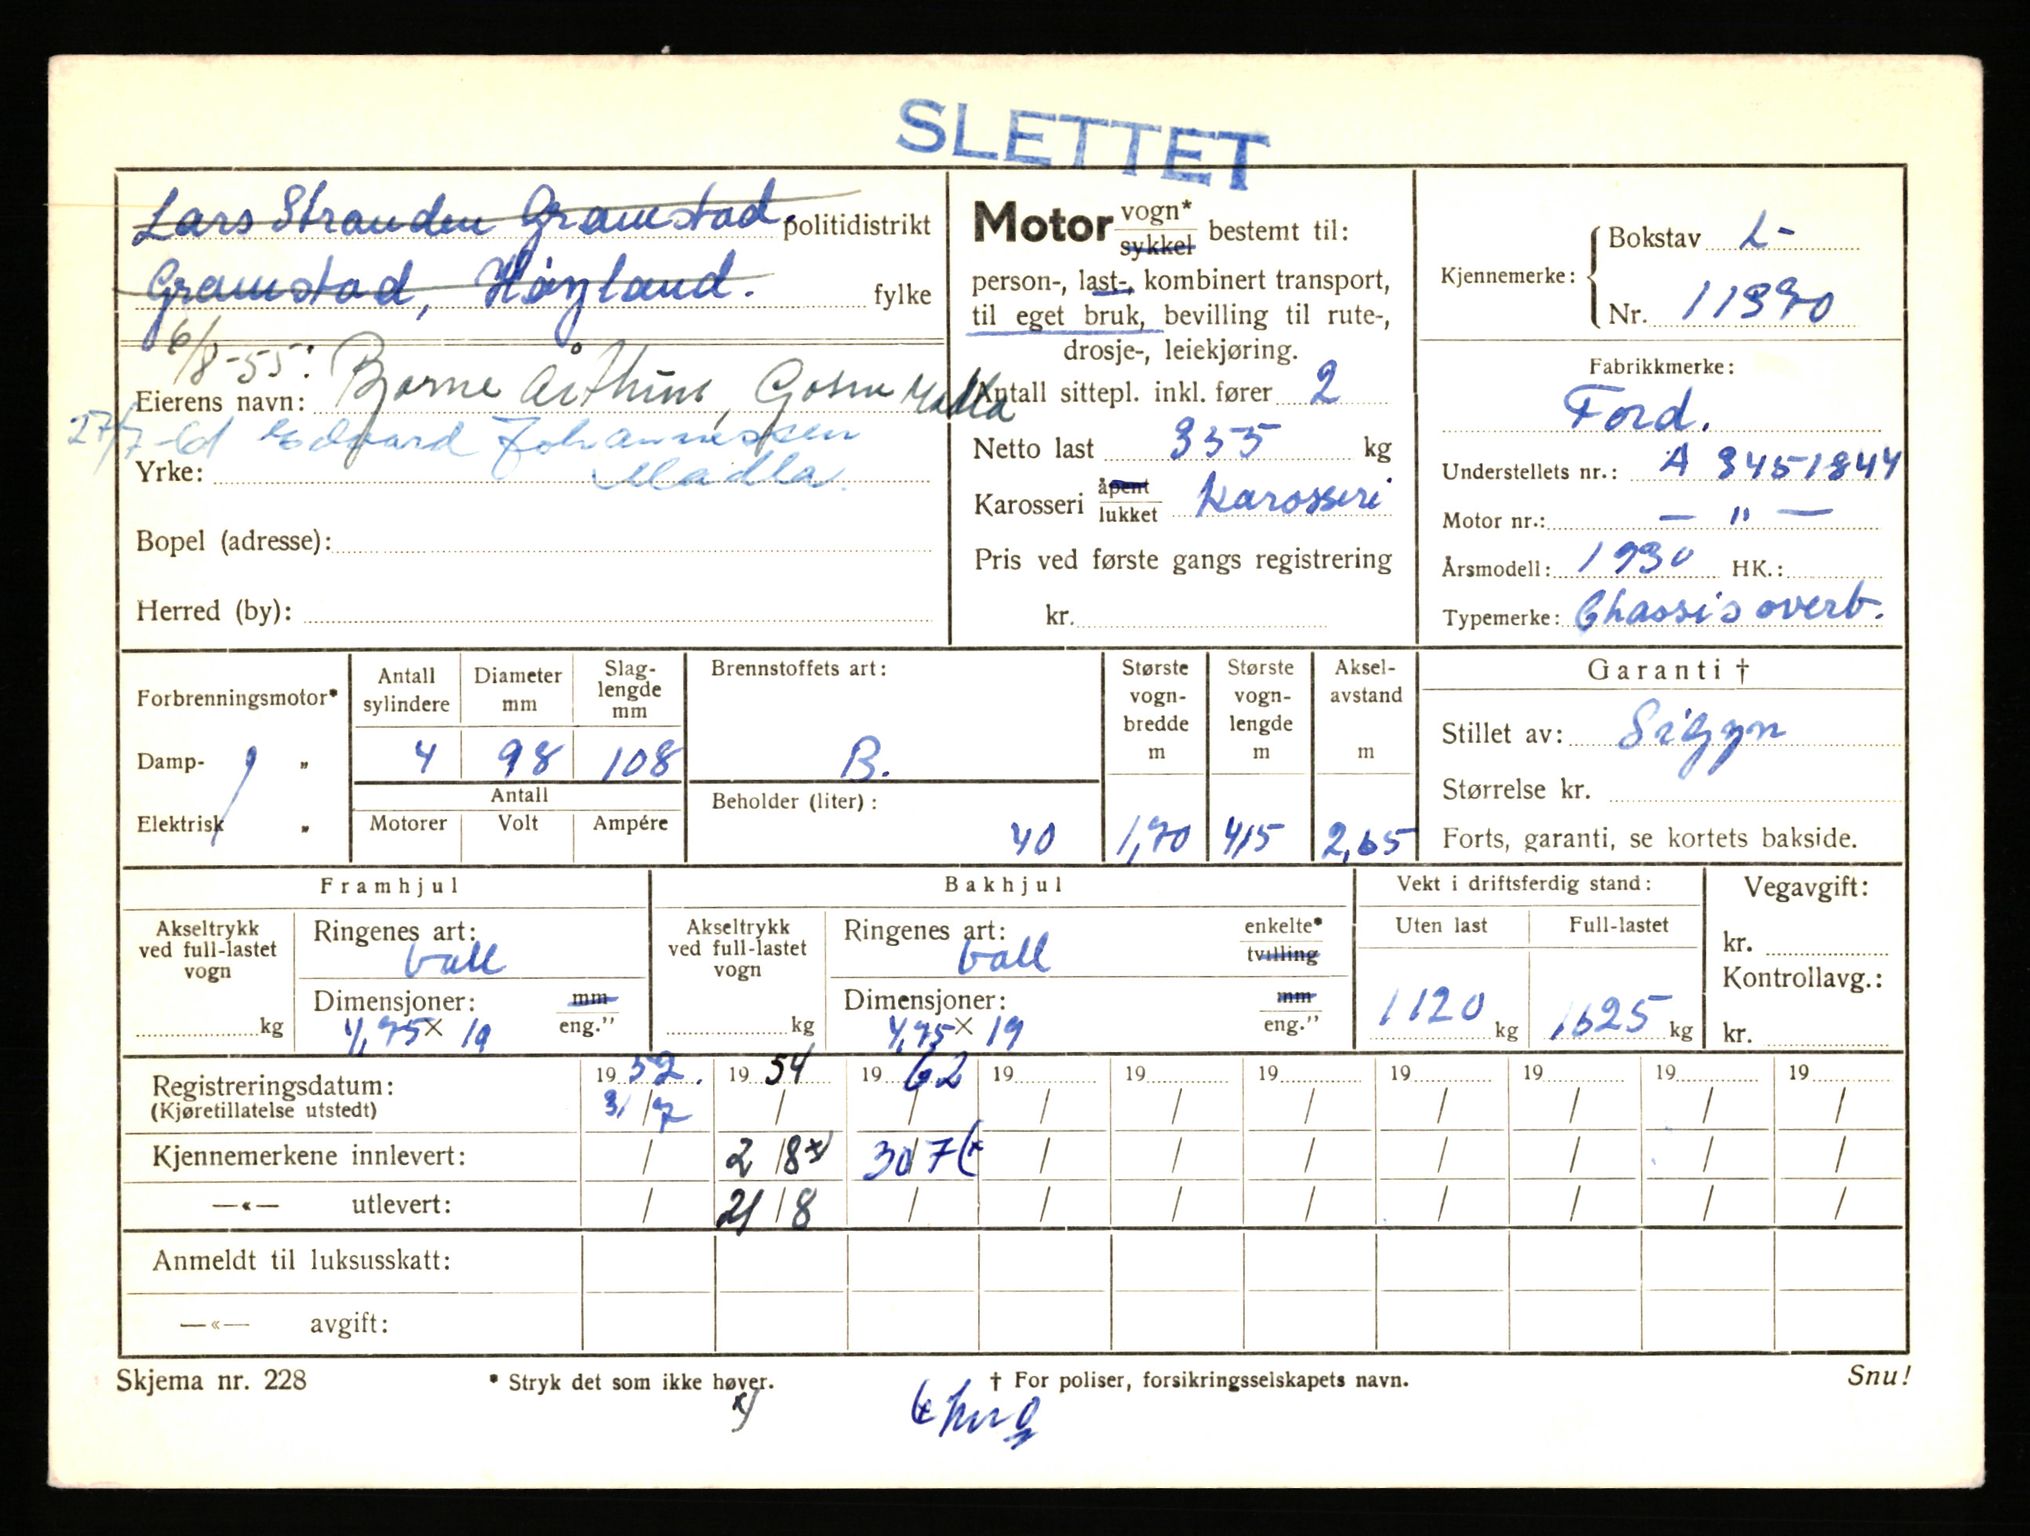 SLETTET
Lars Stranden Gramstad, politidistrikt
Gramstad, Høyland. fylke
6/8-55:
Eierens navn: Bjarne Åsthus, Gosen Madla
27/7-61 Edvard Johannessen
Yrke: Madla.
Bopel (adresse):
Herred (by):
Motor vogn* sykkel bestemt til:
person-, last-, kombinert transport,
til eget bruk, bevilling til rute-,
drosje-, leiekjøring.
Antall sittepl. inkl. fører 2
Netto last 355 kg
Karosseri åpent lukket karosseri
Pris ved første gangs registrering
kr.
Kjennemerke: Bokstav L-
Nr. 11970
Fabrikkmerke:
Ford.
Understellets nr.: A 3451844
Motor nr.: — " —
Årsmodell: 1930 HK.:
Typemerke: Chassis overb.
Forbrenningsmotor*
Damp- „
Elektrisk „
Antall sylindere
4
Diameter mm
98
Slag-lengde mm
108
Antall
Motorer Volt Ampére
Brennstoffets art:
B.
Beholder (liter):
40
Største vogn-bredde m
1,70
Største vogn-lengde m
4,15
Aksel-avstand m
2,65
Garanti †
Stillet av: Sigyn
Størrelse kr.
Forts, garanti, se kortets bakside.
Framhjul
Akseltrykk ved full-lastet vogn
kg
Ringenes art:
ball
Dimensjoner: mm
4,75 x 19 eng."
Bakhjul
Akseltrykk ved full-lastet vogn
kg
Ringenes art: enkelte*
ball tvilling
Dimensjoner: mm
4,75 x 19 eng."
Vekt i driftsferdig stand:
Uten last Full-lastet
1120 kg 1625 kg
Vegavgift:
kr.
Kontrollavg.:
kr.
Registreringsdatum: 19 52. 19 54 19 62 19 19 19 19 19 19 19
(Kjøretillatelse utstedt) 31/7 / / / / / / / / /
Kjennemerkene innlevert: / 2/8 x) 30/7 (x / / / / / / /
—«— utlevert: / 21/8 / / / / / / / /
Anmeldt til luksusskatt:
—«— avgift:
Skjema nr. 228
* Stryk det som ikke høver.
† For poliser, forsikringsselskapets navn.
Snu!
x)